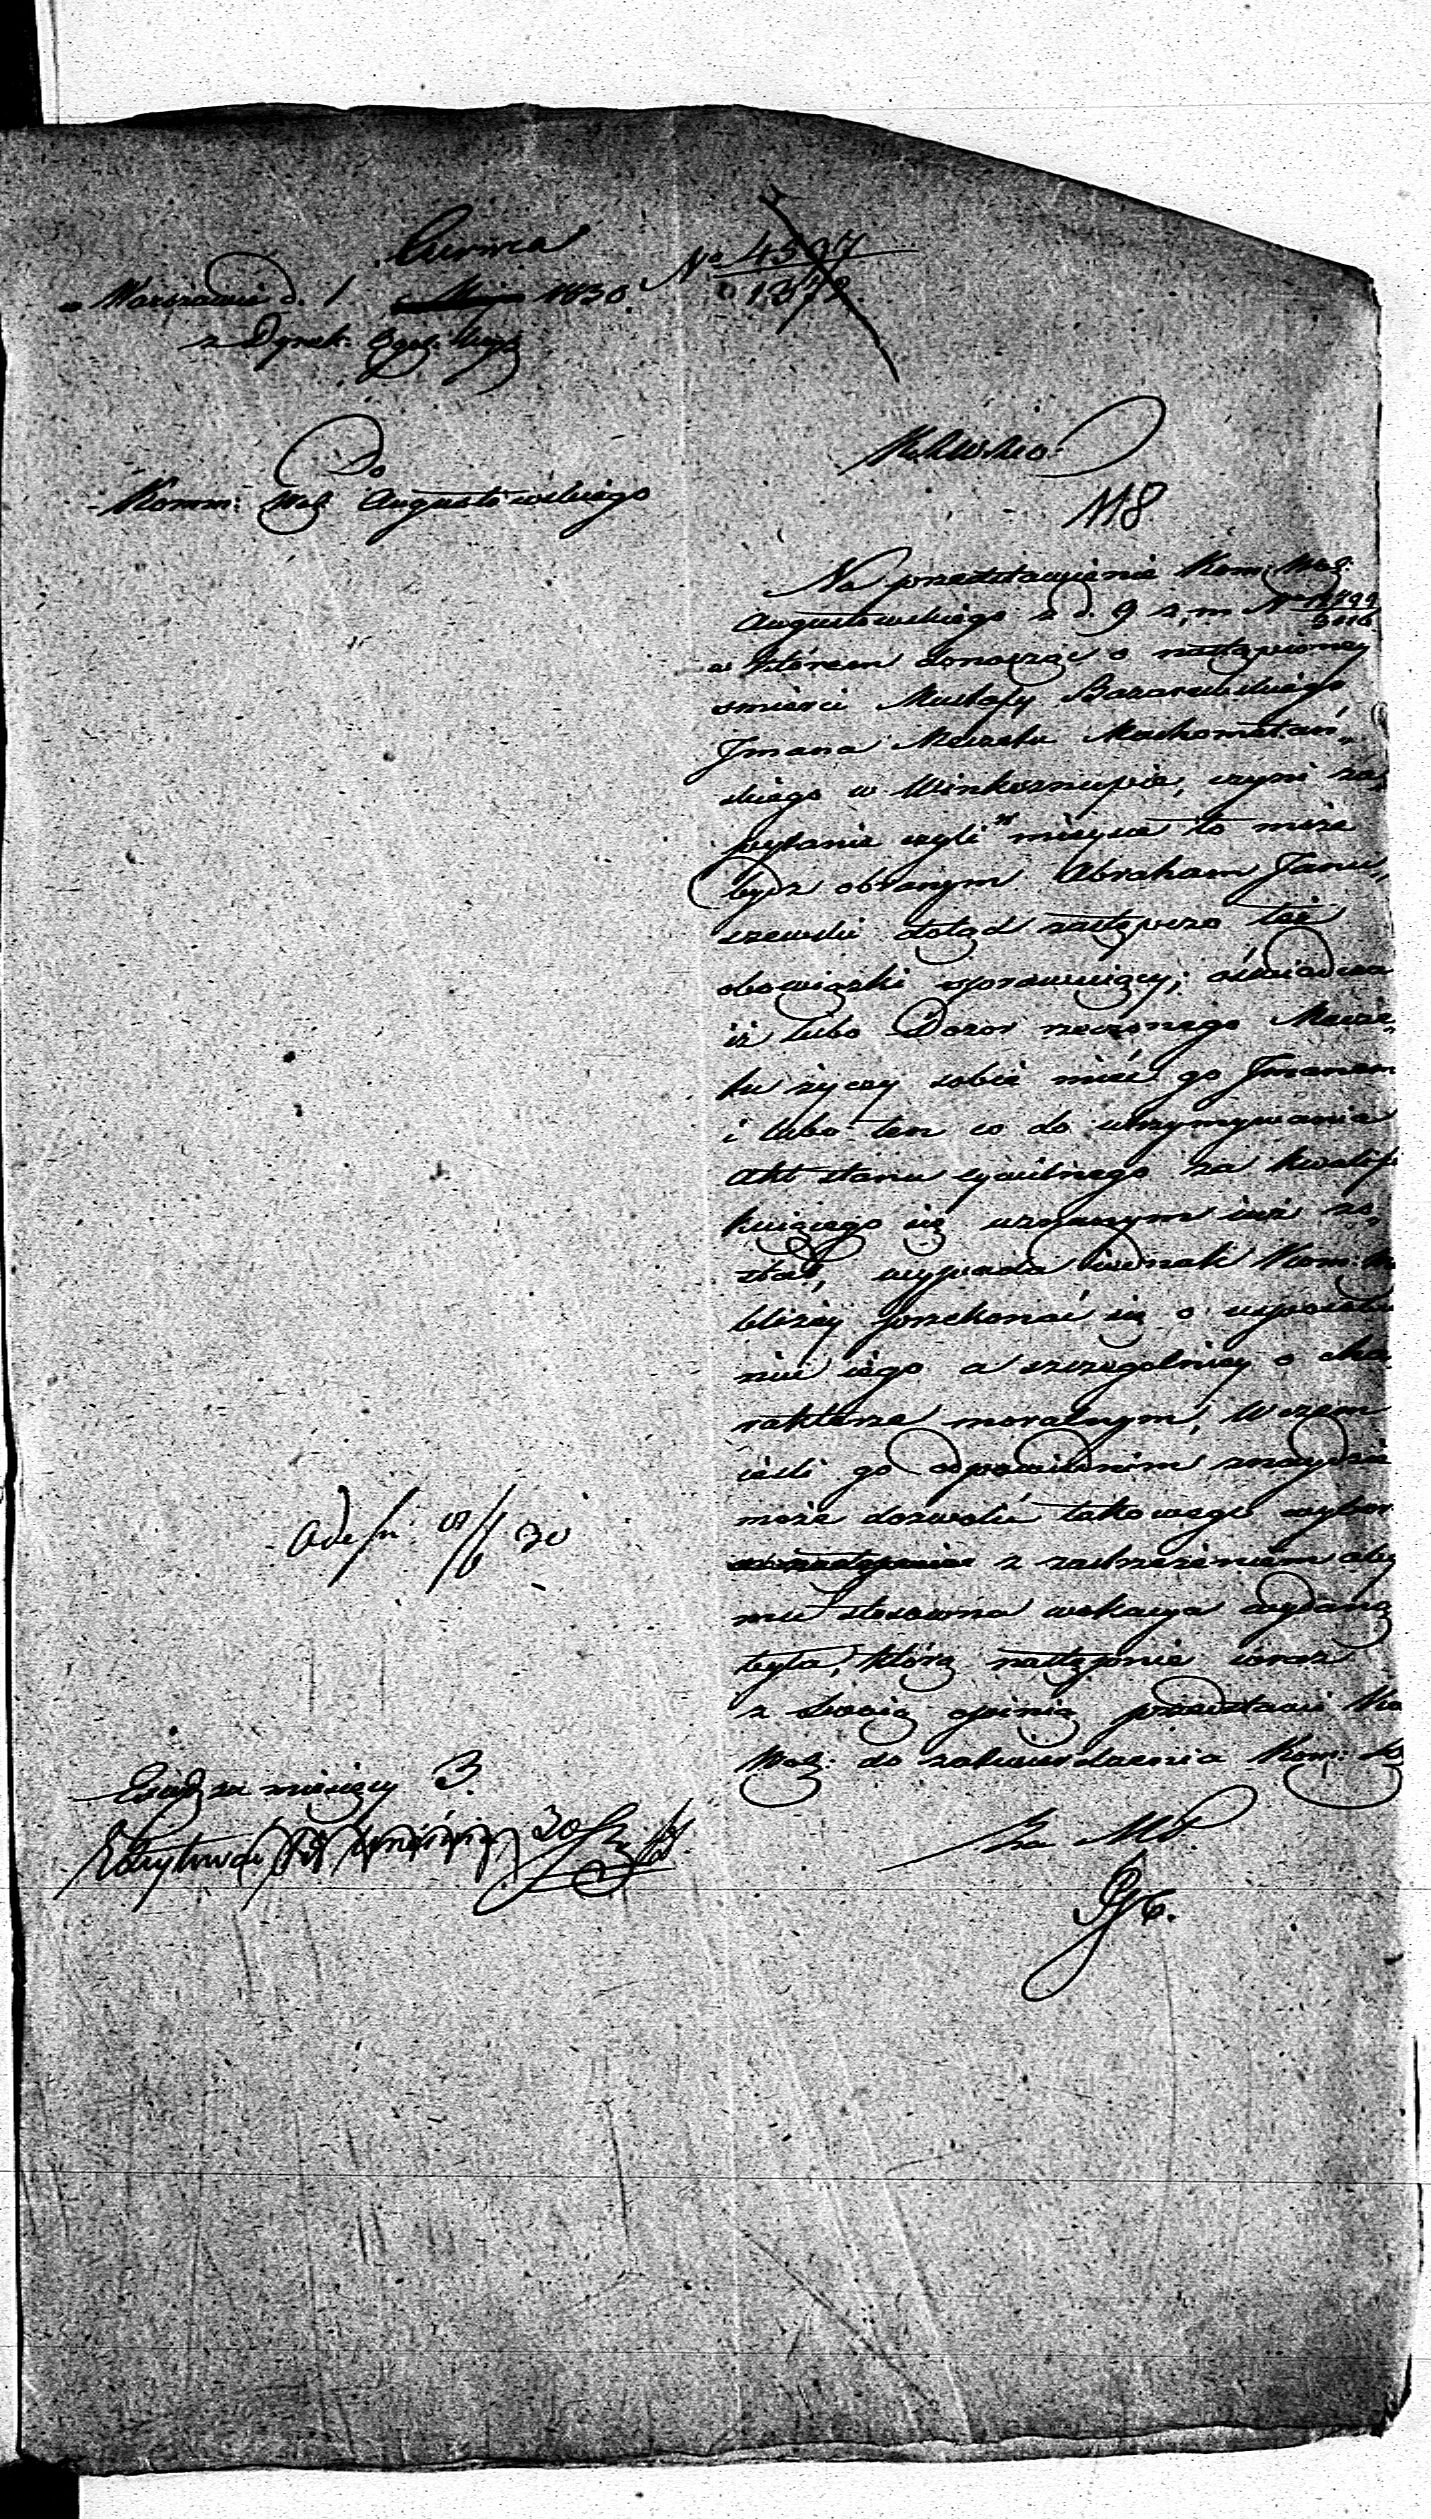 Czerwca
w Warszawie d. 1 Maja 1830
No 4597
1372
z Dyrek:
Do
Komm: Woj Augustowskiego
118
Na przedstawienie Kom: Woj:
Augustowskiego z d. 9 z. m No
w którem donosząc o nastąpioney
smierci Mustafy Bazarewskiego
Imana Meczetu Machometań„
skiego w Winksznupie, czyni za„
pytanie czyli w mieysce to może
bydz obranym Abraham Janu„
szewski dotąd zastępczo też
obowiązki sprawuiący; oświadcza
iż lubo Dozor rzeczonego Mecze„
tu życzy sobie mieć go Imanem
i lubo ten co do utrzymywania
Akt stanu cywilnego za kwalifi
kuiącego się uznanym iuż zo„
stał, wypada iednak Kom: W
bliżey przekonać się o usposobie
niu iego a szczegolniey o cha
rakterze moralnym, W czem
ieśli go odpowiednim znaydzie
może dozwolić takowego wybor
z zastrzeżeniem aby
mu stosowna wokacya wydaną
była, którą następnie wraz
z swoią opinią przedstawi Ko
Woj: do zatwierdzenia Kom:
za miesięcy 3.
Za MP.